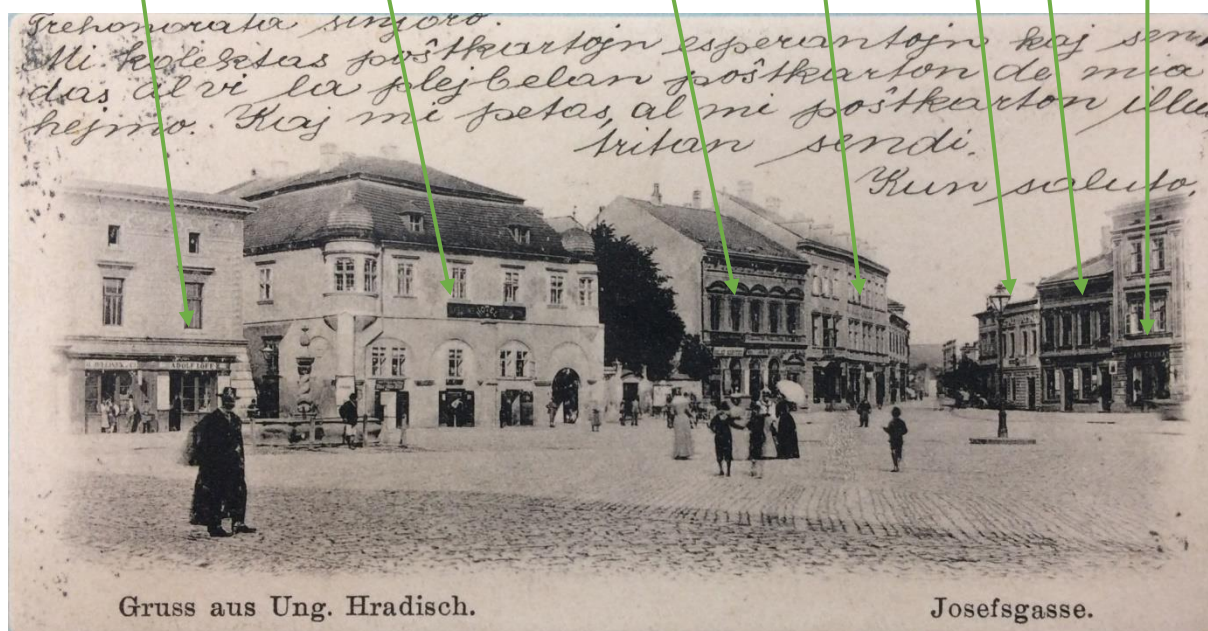 Trehonorata sinjoro.
Mi kolektas poŝtkartojn esperantojn kaj sen-
das al vi la plejbelan poŝtkarton de mia
hejmo. Kaj mi petas, al mi poŝtkarton illus-
tritan sendi.
Kun saluto.
ADOLF LÖFF
Gruss aus Ung. Hradisch.
Josefsgasse.